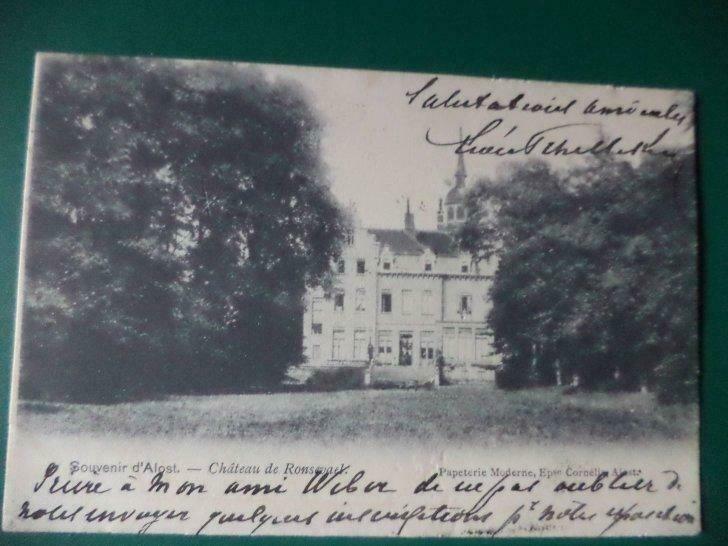 Salutations amicales
Souvenir d'Alost. — Château de Ronsevael.
Papeterie Moderne, Epse Cornélis Alost.
Prière à Mon ami Weber de ne pas oublier de
nous envoyer quelques invitations pr notre exposition